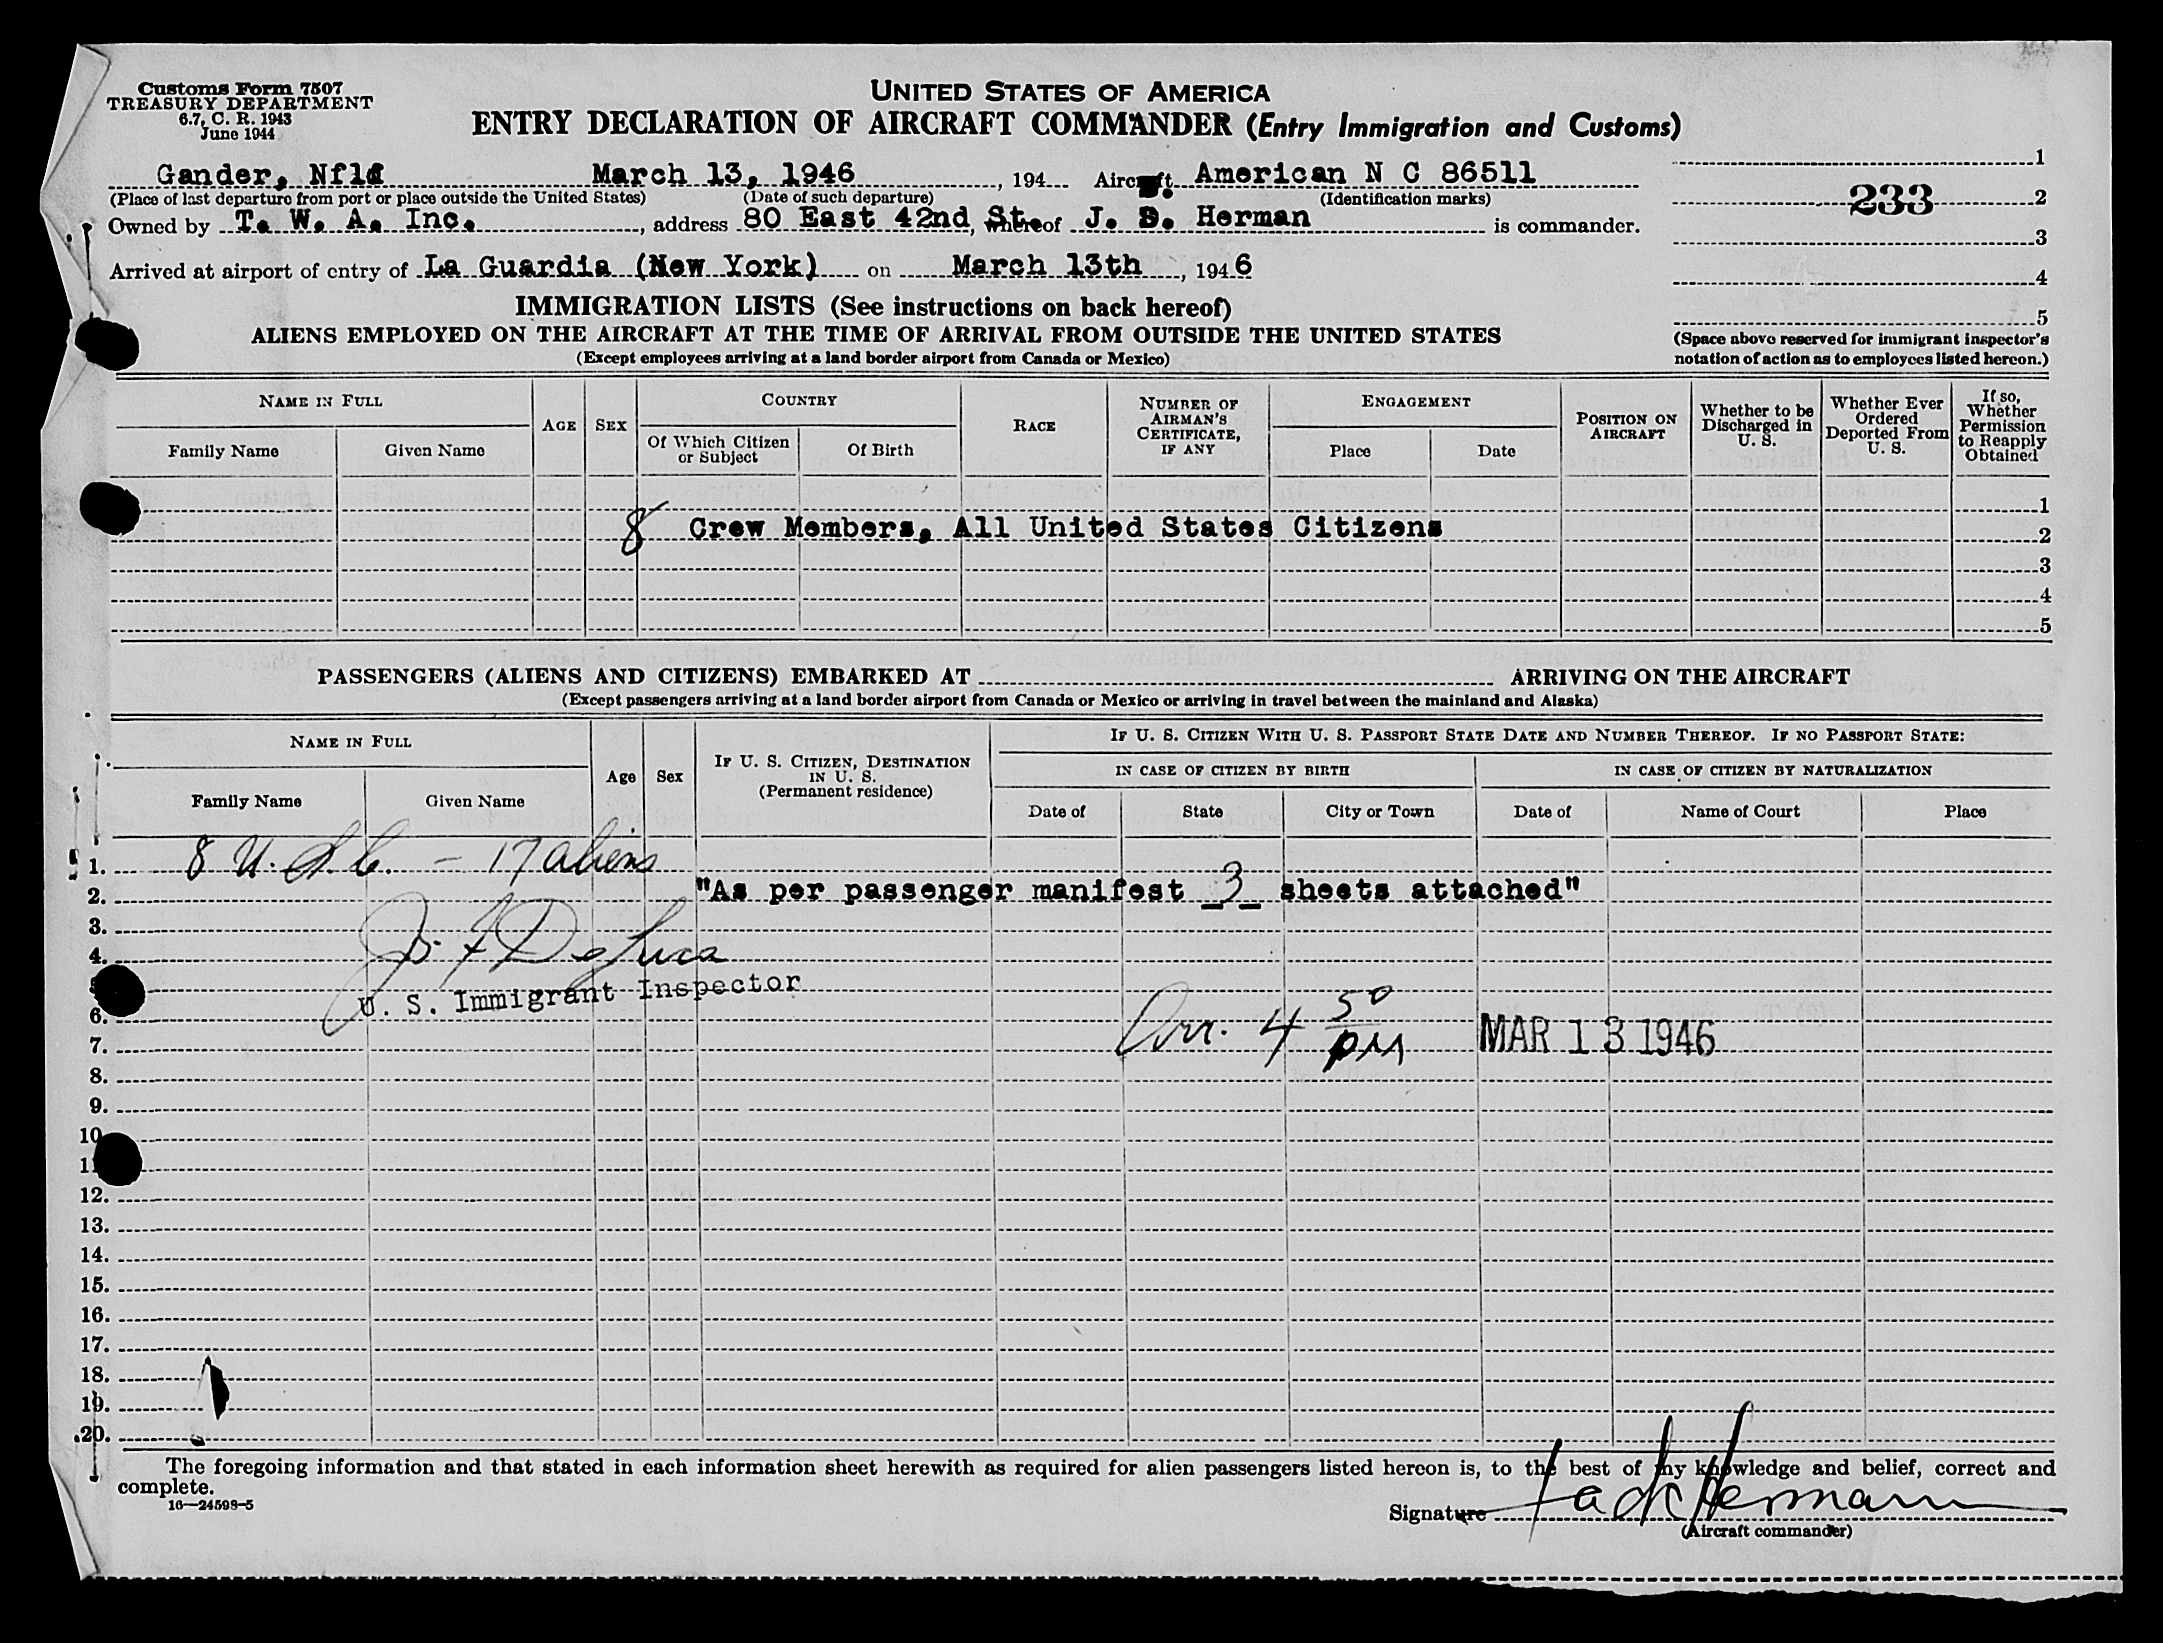 Customs Form 7507
TREASURY DEPARTMENT
6.7, C. R. 1943
June 1944
UNITED STATES OF AMERICA
ENTRY DECLARATION OF AIRCRAFT COMMANDER (Entry Immigration and Customs)
Gander, Nfld March 13, 1946, 194 Aircraft American N C 86511
(Place of last departure from port or place outside the United States) (Date of such departure) (Identification marks)
Owned by T. W. A. Inc., address 80 East 42nd St., whereof J. S. Herman is commander.
Arrived at airport of entry of La Guardia (New York) on March 13th, 1946
1
233 2
3
4
5
(Space above reserved for immigrant inspector's
notation of action as to employees listed hereon.)
IMMIGRATION LISTS (See instructions on back hereof)
ALIENS EMPLOYED ON THE AIRCRAFT AT THE TIME OF ARRIVAL FROM OUTSIDE THE UNITED STATES
(Except employees arriving at a land border airport from Canada or Mexico)
NAME IN FULL
Family Name Given Name
AGE SEX
COUNTRY
Of Which Citizen or Subject Of Birth
RACE
NUMBER OF AIRMAN'S CERTIFICATE, IF ANY
ENGAGEMENT
Place Date
POSITION ON AIRCRAFT
Whether to be Discharged in U. S.
Whether Ever Ordered Deported From U. S.
If so, Whether Permission to Reapply Obtained
1
8 Crew Members, All United States Citizens 2
3
4
5
PASSENGERS (ALIENS AND CITIZENS) EMBARKED AT ARRIVING ON THE AIRCRAFT
(Except passengers arriving at a land border airport from Canada or Mexico or arriving in travel between the mainland and Alaska)
NAME IN FULL
Family Name Given Name
Age Sex
IF U. S. CITIZEN, DESTINATION IN U. S. (Permanent residence)
IF U. S. CITIZEN WITH U. S. PASSPORT STATE DATE AND NUMBER THEREOF. IF NO PASSPORT STATE:
IN CASE OF CITIZEN BY BIRTH IN CASE OF CITIZEN BY NATURALIZATION
Date of State City or Town Date of Name of Court Place
1. 8 U.S.C. - 17 aliens
2. "As per passenger manifest 3 sheets attached"
3.
4. Jos. F DeLuca
5 U. S. Immigrant Inspector
6.
7. Arr. 4 50 PM MAR 13 1946
8.
9.
10
11
12.
13.
14.
15.
16.
17.
18.
19.
20.
The foregoing information and that stated in each information sheet herewith as required for alien passengers listed hereon is, to the best of my knowledge and belief, correct and
complete.
16—24598-5
Signature Jack Hermann
(Aircraft commander)